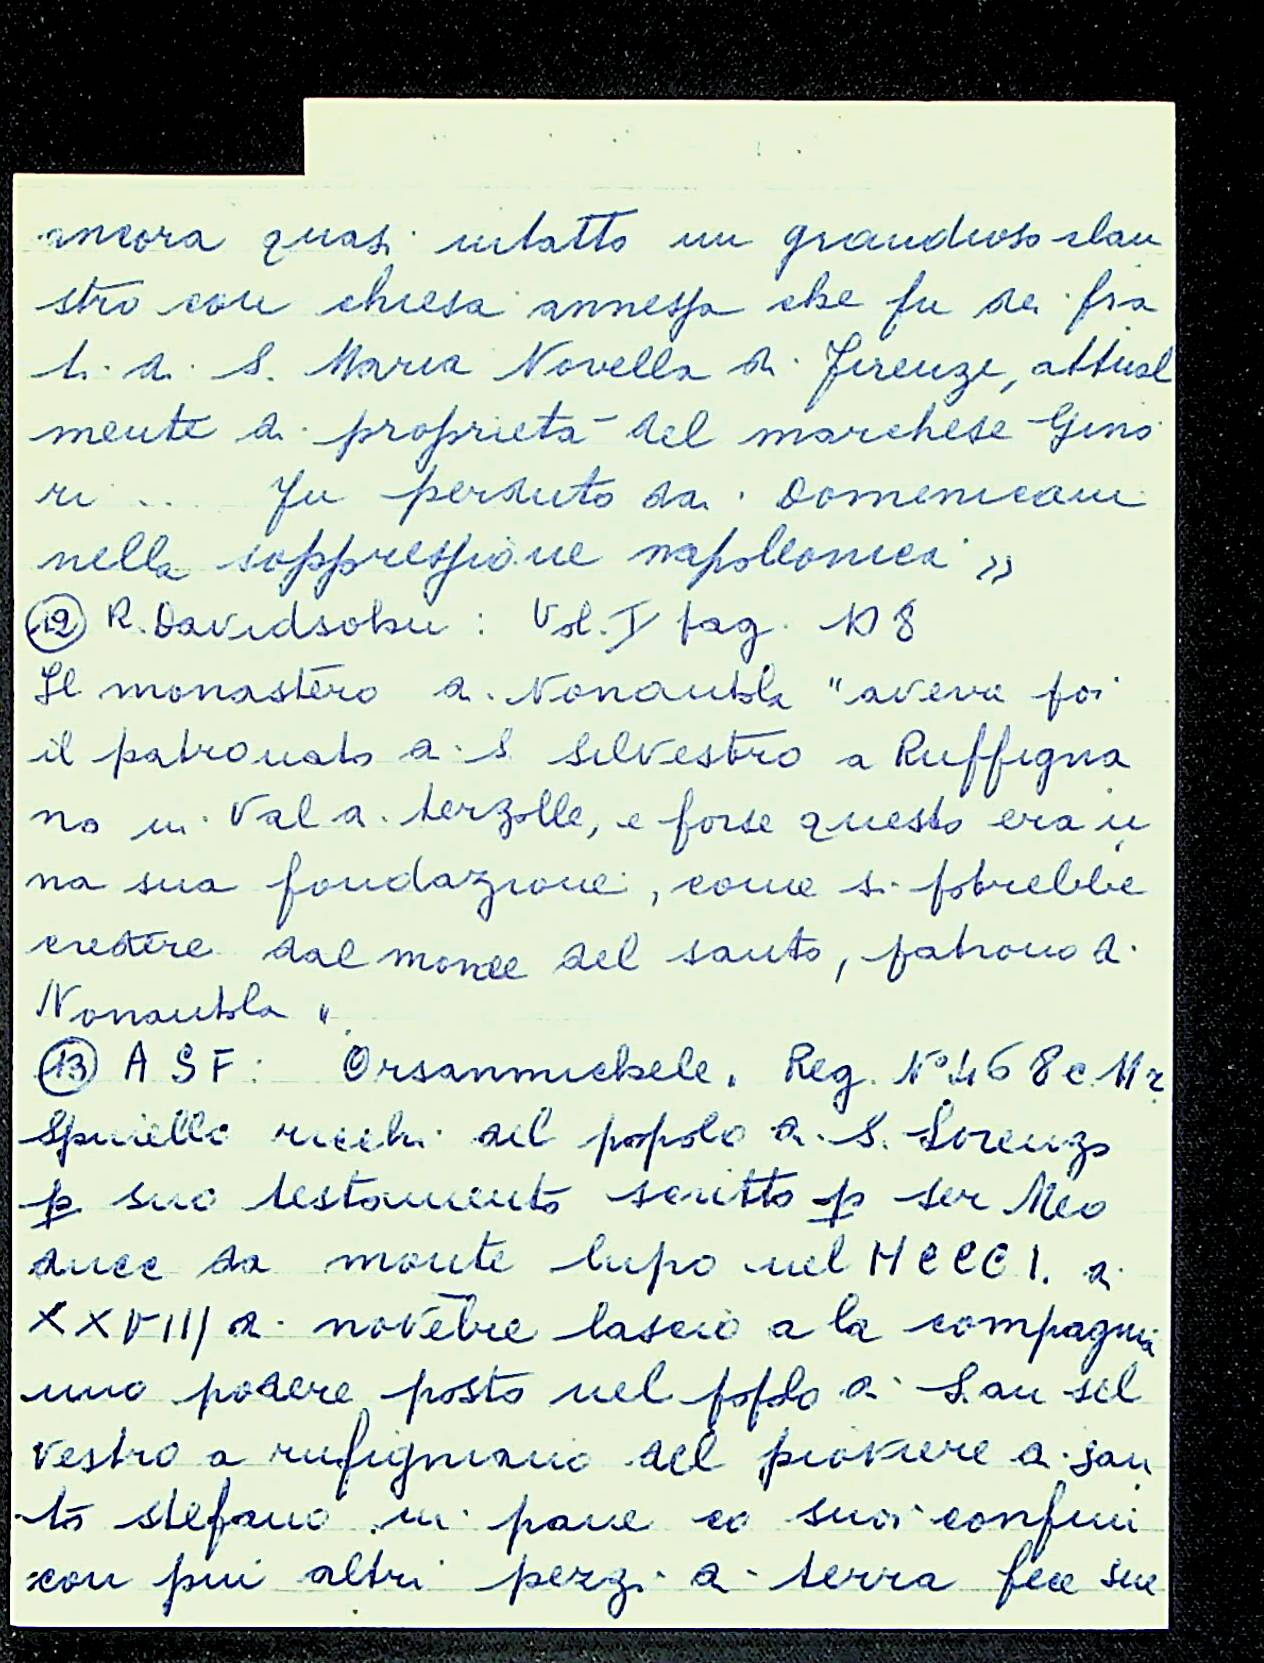 ancora quasi intatto un grandioso clau
stro con chiesa annessa che fu dei fra
ti di S. Maria Novella di Firenze, attual
mente di proprietà del marchese Gino
ri ... Fu perduto dai Domenicani
nella soppressione napoleonica »
12 R. Davidsohn : Vol. I pag. 108
Il monastero di Nonantola "aveva poi
il patronato di S Silvestro a Ruffigna
no in Val di terzolle, e forse questo era u
na sua fondazione, come si potrebbe
credere dal monee del santo, patrono di
Nonantola "
13 A S F: Orsanmichele. Reg. N° 468 c. 11 r
Spinello ricchi del popolo di S. Lorenzo
p suo testamento scritto p ser Meo
ducc da monte lupo nel MCCCI. di
XXVIII di novēbre lasciò a la compagnia
uno podere posto nel popolo di San sel
vestro a rufigniano del pioviere di san
to stefano in pane co suoi confini
con piu altri pezzi di terra fece sue